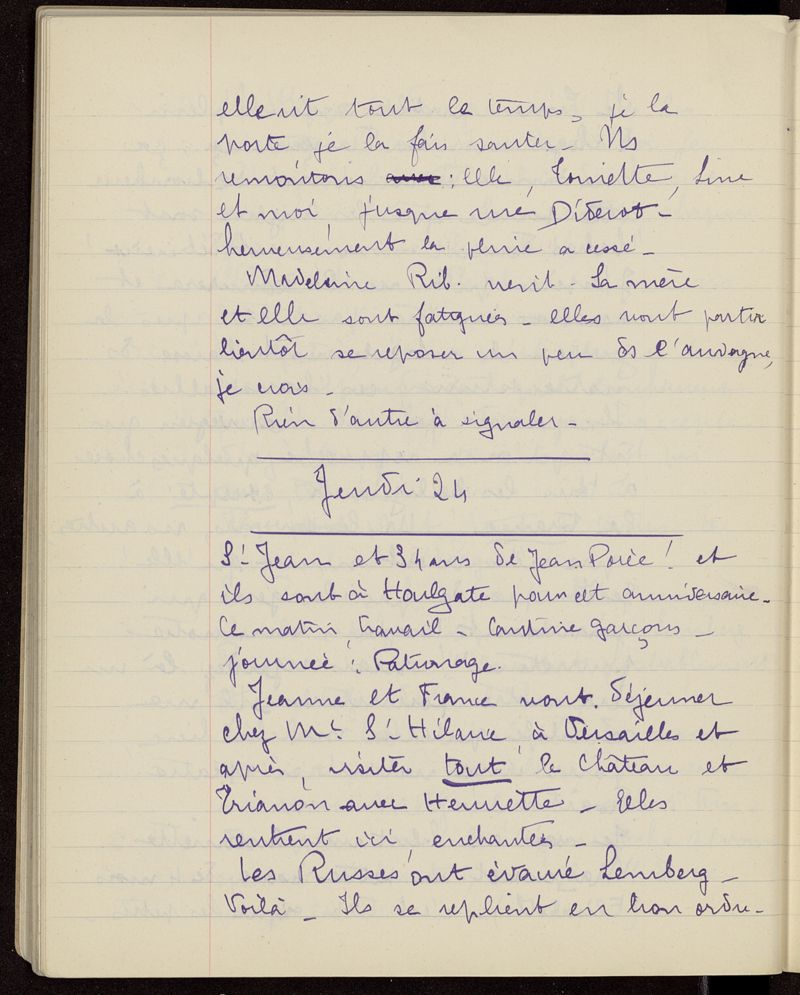 elle rit tout le temps, je la
porte je la fais sauter - Ns
remontons : elle, Toinette, Line
et moi, jusque rue Diderot -
heureusement la pluie a cessé -
Madeleine Rib. vient. Sa mère
et elle sont fatiguées - elles vont partir
bientôt se reposer un peu ds l'auvergne,
je crois -
Rien d'autre à signaler -
Jeudi 24
St Jean et 34 ans de Jean Porée ! et
ils sont à Houlgate pour cet anniversaire -
Ce matin, travail - Cantine garçons -
journée : Patronage.
Jeanne et France vont déjeuner
chez Mr St Hilaire à Versailles et
après, visiter tout le Château et
Trianon avec Henriette - Elles
rentrent ici, enchantées -
Les Russes ont évacué Lemberg -
Voilà - Ils se replient en bon ordre -